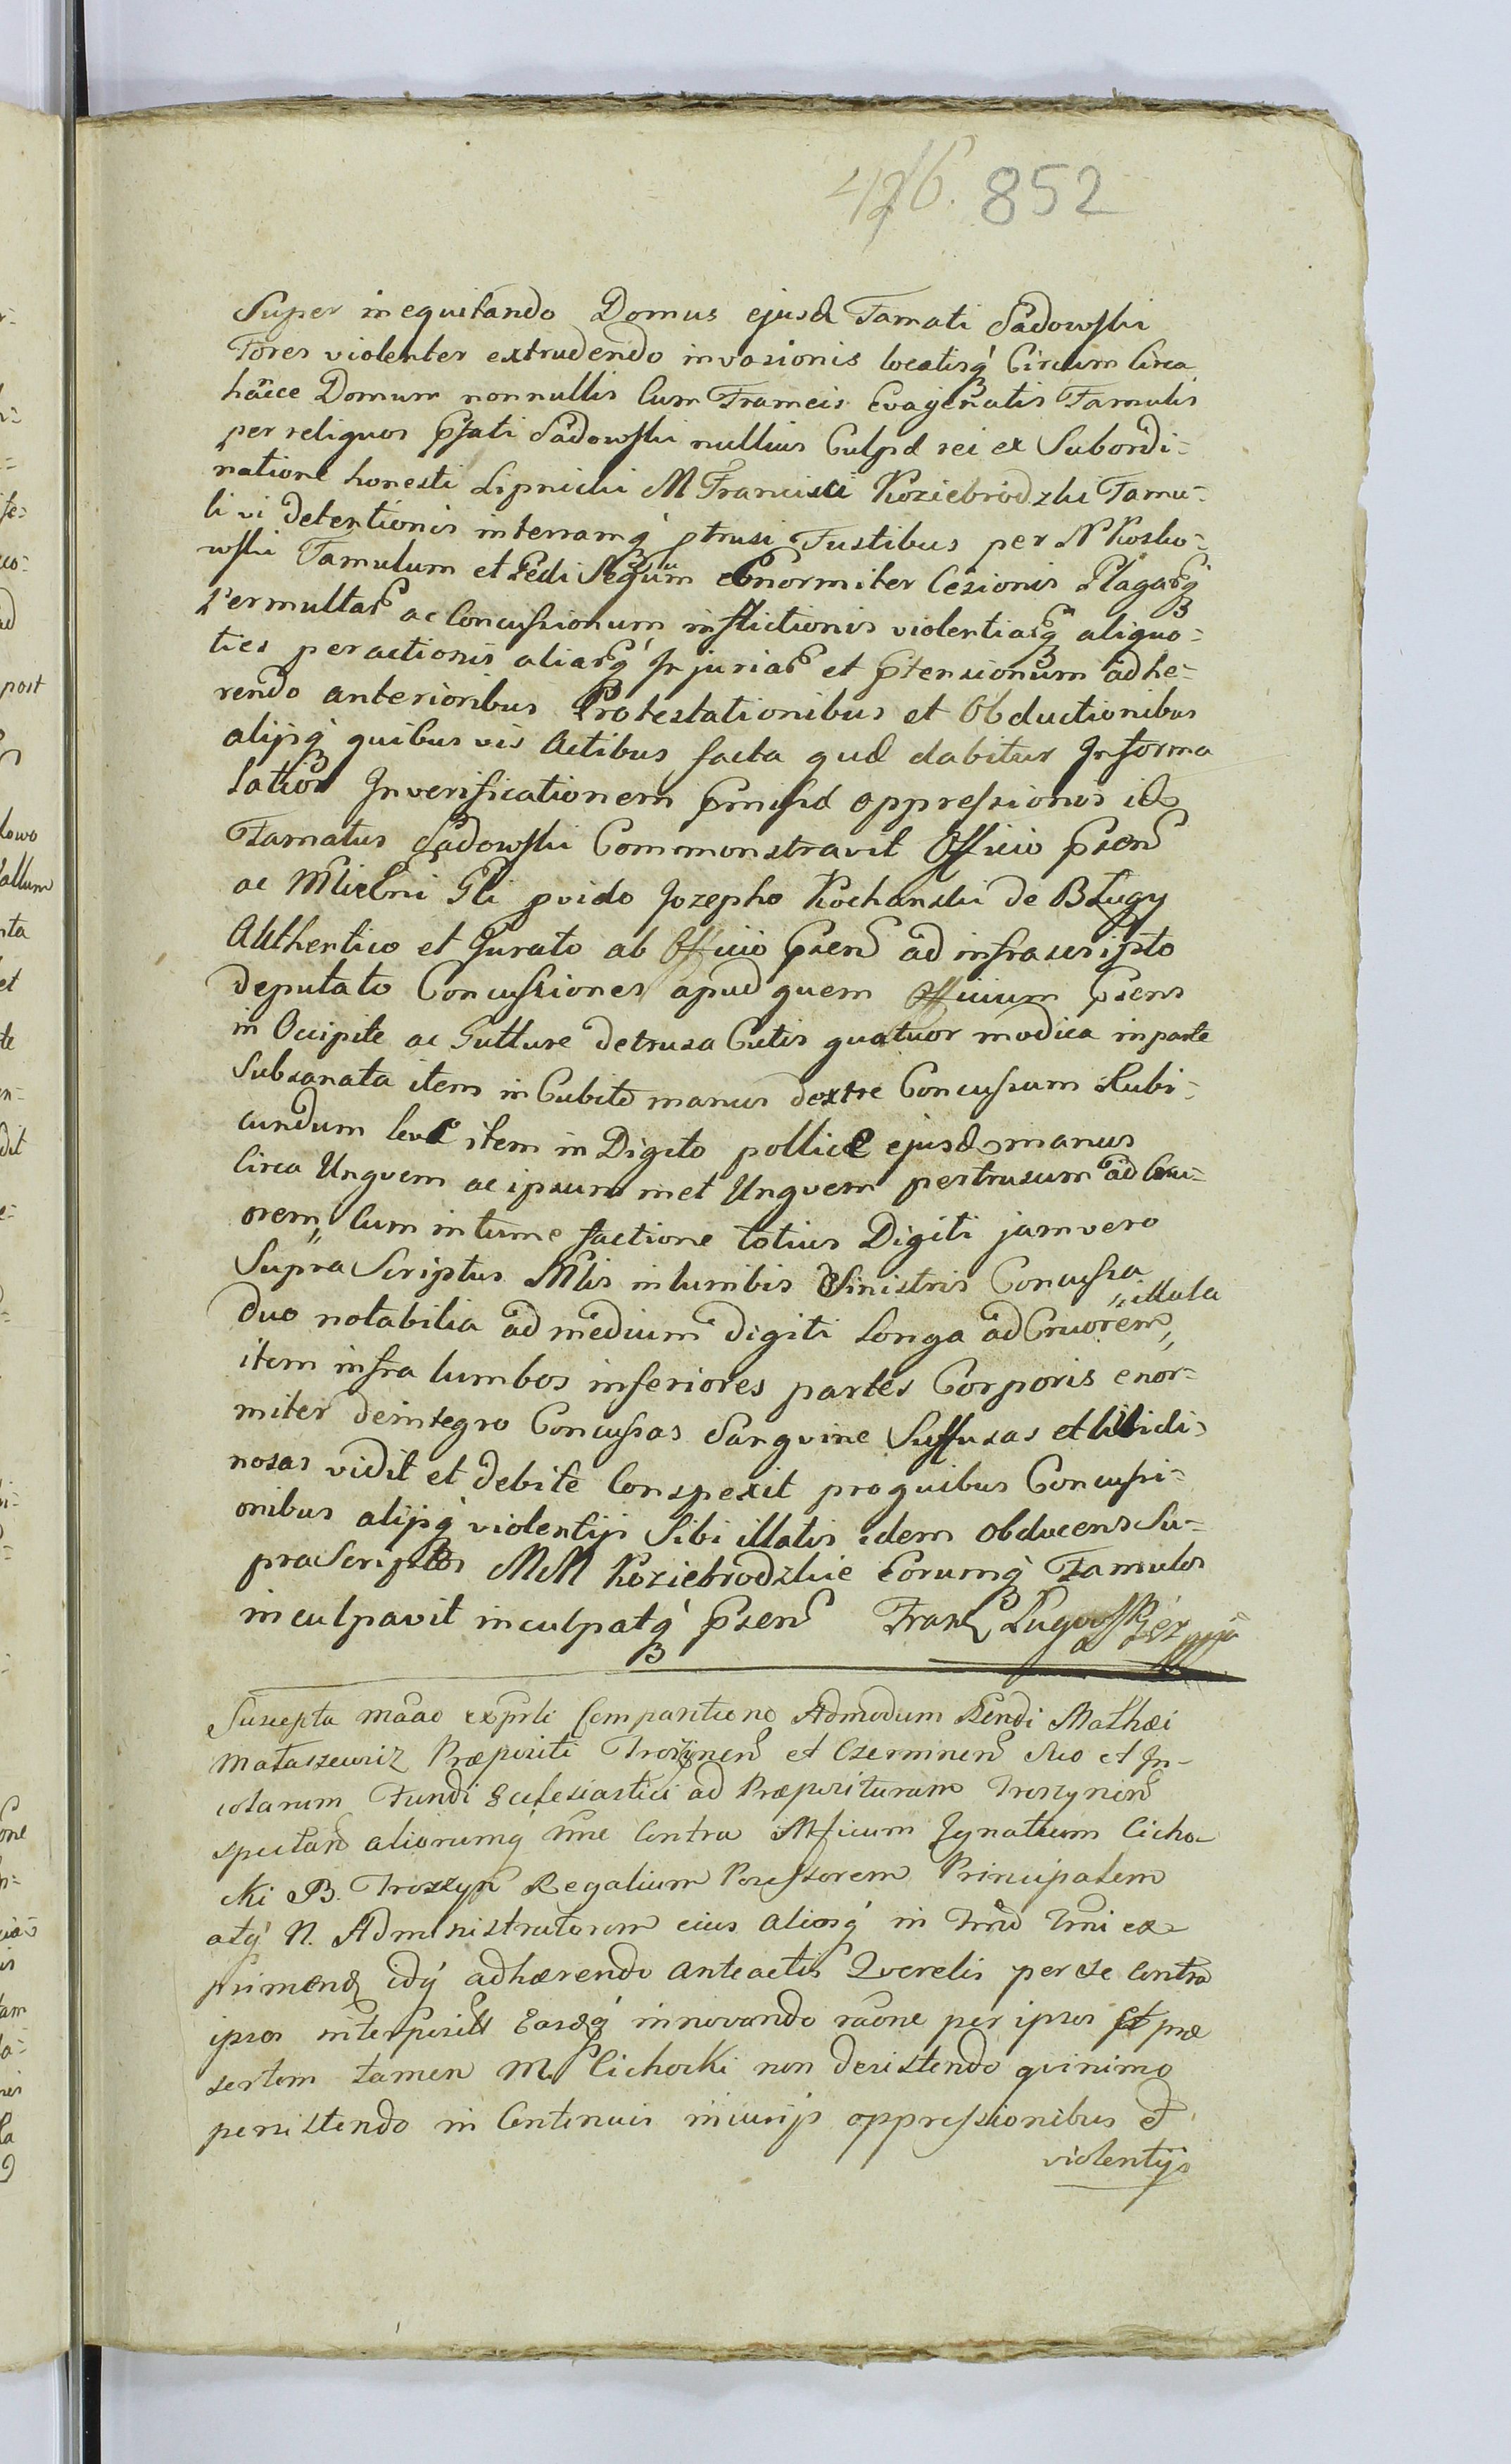 426. 852
Super inequitando Domus ejusd Famati Sadowski
Fores violenter extrudendo invasionis locatisq́ Circum Circa
hâcce Domum nonnullis Cum Frameis Evagenatis Famulis
per reliquos Pfati Sadowski nullius Culpæ rei ex Subordi-
natione honesti Lipnicki M Francisci Koziebrodzki Famu-
li vi detentionis interramq́ ptrusi Fustibus per N Kosko-
wski Famulum et Pedi Sequum Enormiter Cesionis Plagarq́
Permultar ac Concussionum inflictionis violentiarq́ aliquo-
ties peractionis aliarq́ Injuriar et Ptensionum adhe-
rendo anterioribus Protestationibus et Obductionibus
alijsq́ quibusvis Actibus facta quæ dabitur Informa
Inverificationem Pmissæ oppressionis ide
Famatus Sadowski Commonstravit Officio Psen
ac Mlieni Gli pvido Jozepho Kochanski de Bługy
Authentico et Jurato ab Officio Psen ad infrascripto
deputato Concussiones apud quem Officium Psens
in Occipite ac Gutture detrusa Cutis quatuor modica in parte
Subsanata item in Cubito manus dextre Concussum Rubi-
cundum leve item in Digito pollice ejusd manus
Circa Unguem ac ipsum met Unguem pertrusum ad Cru-
orem,, Cum intumefactione totius Digiti jamvero
Supra Scriptus Mlis in lumbis Sinistris Concussa
,,illata
duo notabilia ad medium digiti Longa ad Cruorem,,
item infra lumbos inferiores partes Corporis enor-
miter deintegro Concussas Sangvine Suffusas et libidi-
nosas vidit et debite Conspexit proquibus Concussi-
onibus alijsq́ violentijs Sibi illatis idem obducens Su-
pra Scriptos MM Koziebrodzkie Eorumq́ Famulos
inculpavit inculpatq́ Psen Fran Ługowski
Suscepta mâao exprli Comparitione Admodum Rendi Mathæi
Mataszewicz Præpositi Troszynen et Czerminen Suo et In-
colarum Fundi Ecclesiastici ad Præposituram Troszynen
spectan aliorumq́ nne Contra Mficum Ignatium Cicho-
cki B. Troszyn Regalium Possessorem Principalem
atq́ N. Administratorem eius aliosq́ in Tmd Tmi ex-
primend idq́ adhærendo anteactis Querelis per se Contra
ipsos interpositis Easdq́ innovando râone per ipsos præ
sertem tamen M Cichocki non desistendo quinimo
persistendo in Continuis iniurijs oppressionibus et
violentijs